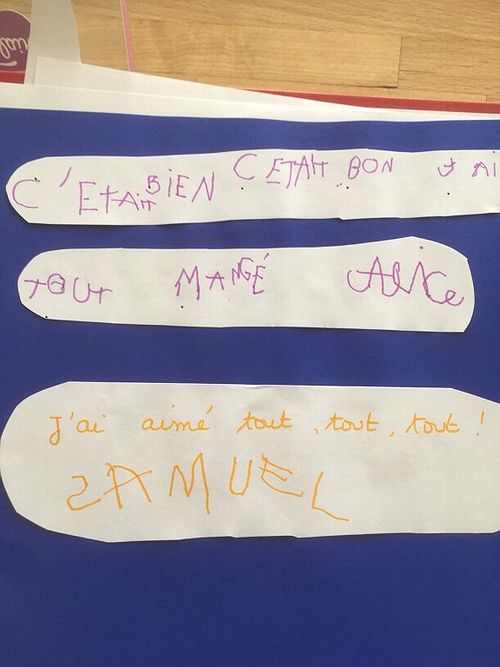 C'ETAIT BIEN C ETAIT BON J Ai
TOUT MANGÉ ALiCe
J'ai aimé tout, tout, tout !
SAMUEL